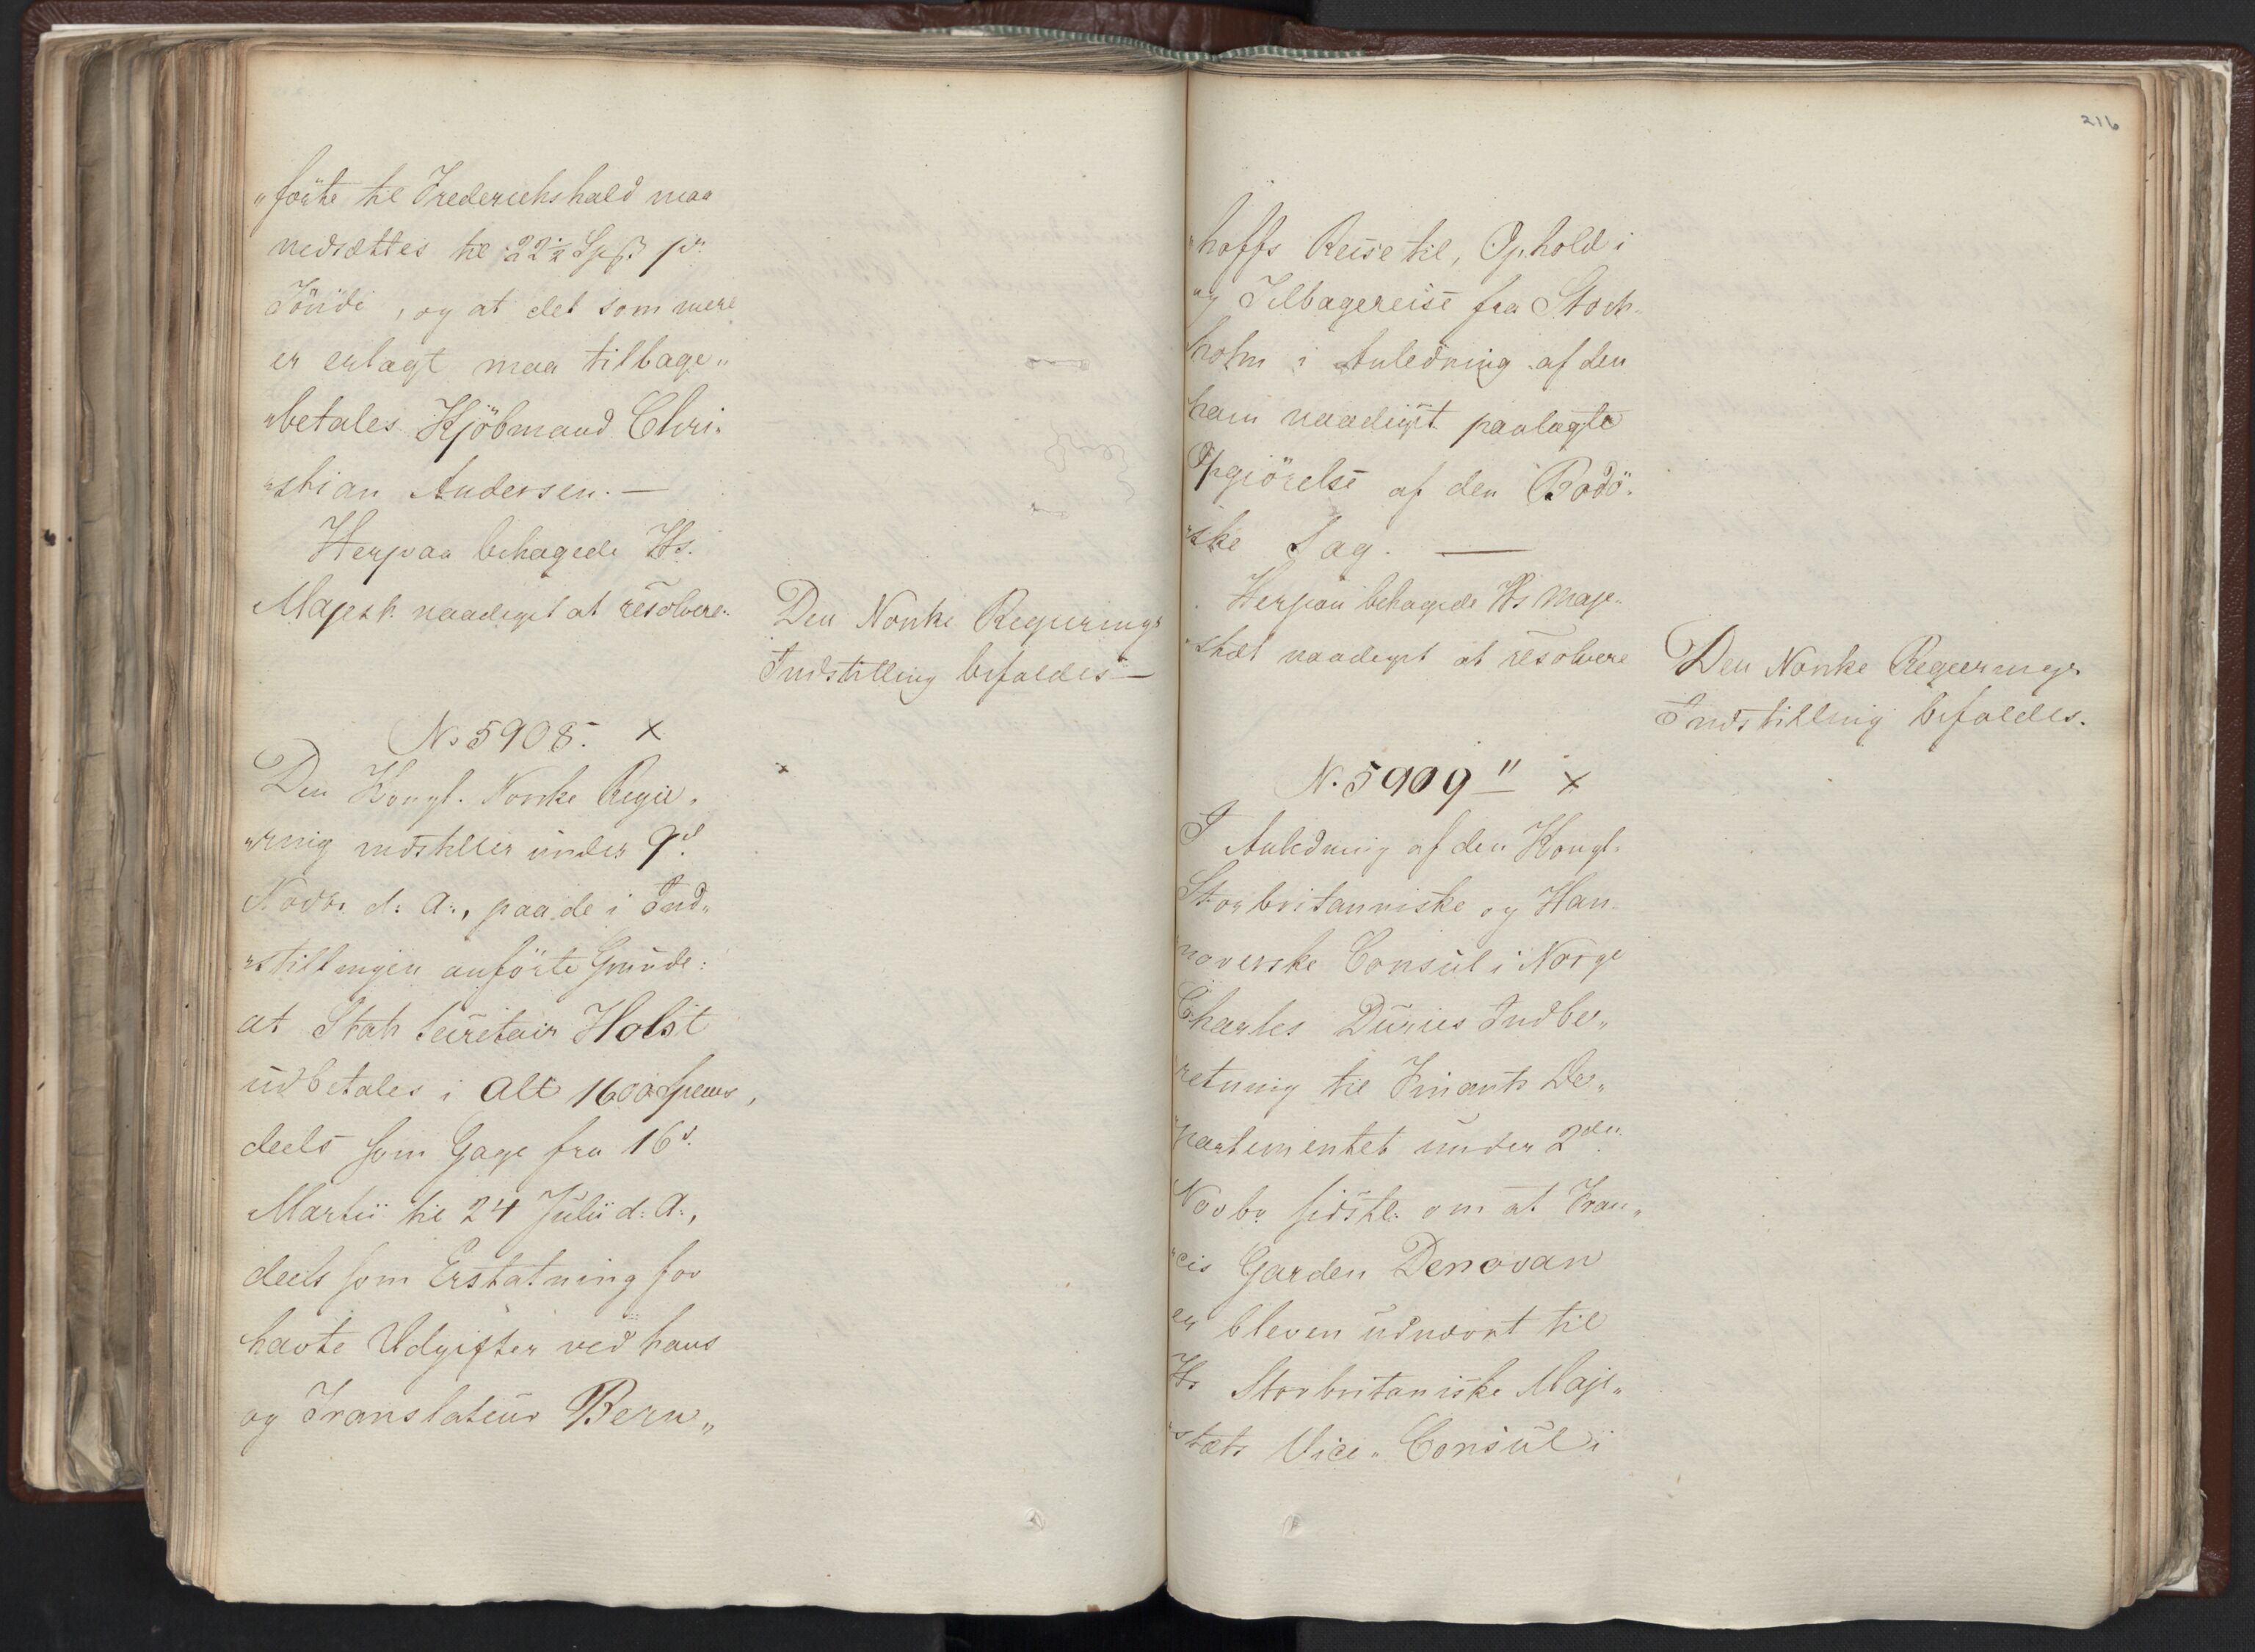 „förte til Frederichshald maa
nedsættes til 22½ Spß pr
Tönde, og at det som mere
er erlagt maa tilbage„
„betales Kjöbmand Chri„
„stian Andersen. —
Herpaa behagede Hs.
Majest. naadigst at resolvere.
Den Norske Regierings
Indstilling bifaldes —
No 5908. x
Den Kongl. Norske Regie„
„ring indstiller under 9d
Novbr d: A:, paa de i Ind„
„stillingen anförte Grunde:
at Stats Secretair Holst
udbetales i Alt 1600 Species,
deels som Gage fra 16d.
Martii til 24 Julii d: A:,
deels som Erstatning for
havte Udgifter ved hans
og Translateur Bern„
216
„hoffs Reise til, Ophold i
og Tilbagereise fra Stock„
holm i Anledning af den
ham naadigst paalagte
Opgiörelse af den Bodö„
„ske Sag. —
Herpaa behagede Hs Maje„
„stæt naadigst at resolvere
Den Norske Regierings
Indstilling bifaldes.
No. 5909 " x
I Anledning af den Kongl.
Storbritanniske og Han„
noverske Consul i Norge
Charles Duries Indbe„
retning til Finants De„
„partementet under 2den
Novbr sidstl. om at Fran„
„cis Garden Denovan
er bleven udnævnt til
Hs Storbritaniske Maje„
„stæts Vice„Consul i